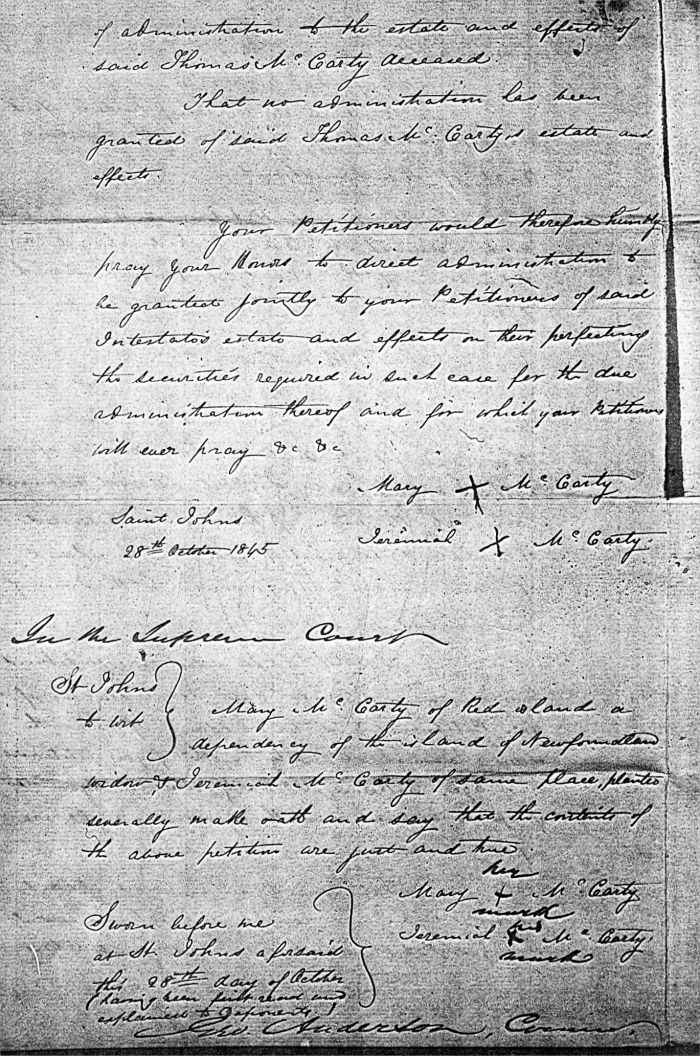 of administration to the estate and effects of
said Thomas Mc Carty deceased.
That no administration has been
granted of said Thomas Mc Carty's estate and
effects.
Your Petitioners would therefore humbly
pray Your Honors to direct administration to
be granted jointly to your Petitioners of said
Intestate's estate and effects on their perfecting
the securities required in such case for the due
administration thereof and for which your Petitioners
will ever pray &c &c
Mary X Mc Carty
Saint Johns
Jeremiah X Mc Carty.
28th October 1845
In the Supreme Court
St Johns
to wit
Mary Mc Carty of Red island a
dependency of the island of Newfoundland
widow & Jeremiah Mc Carty of same place, planter
severally make oath and say that the contents of
the above petition are just and true
her
Mary X Mc Carty
mark
his
Jeremiah X Mc Carty
mark
Sworn before me
at St Johns aforsaid
this 28th day of October
(having been first read and
explained to Deponents)
Geo Anderson, Commr.